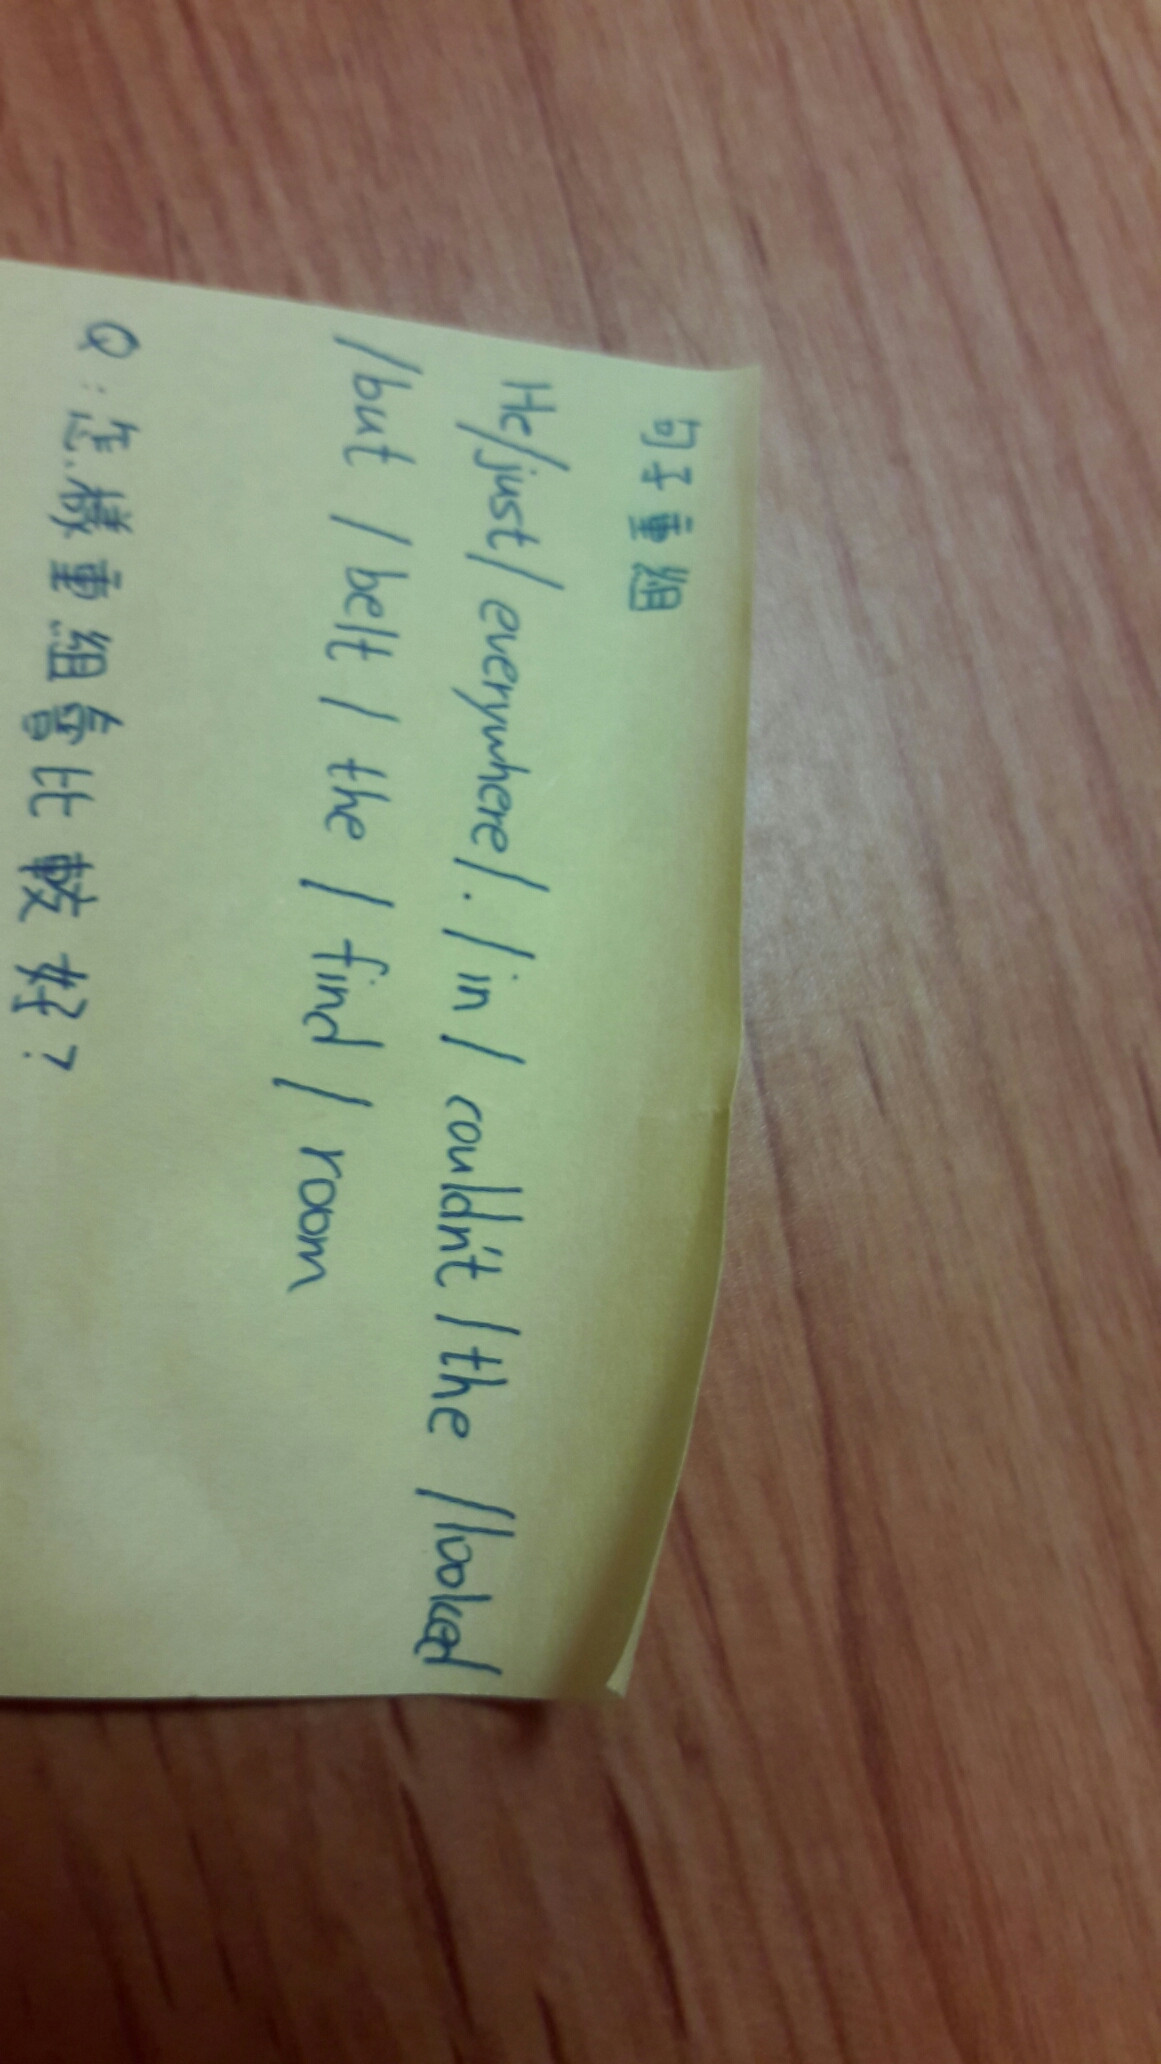 句子重組
He/just/everywhere/./in/couldn't/the/looked
/but/belt/the/find/room
Q:怎樣重組會比較好?